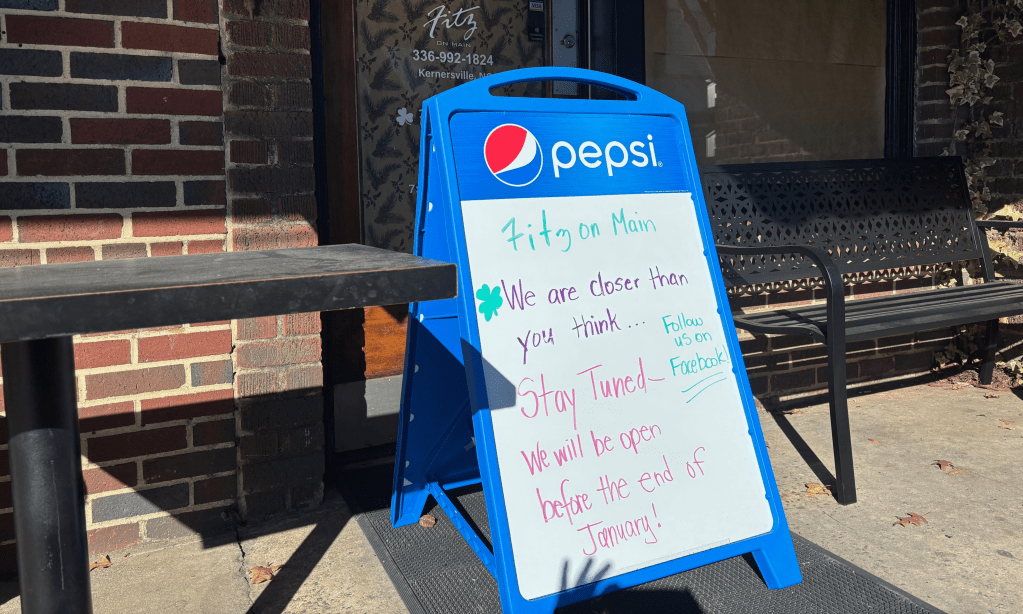 Fitz
ON MAIN
336-992-1824
Kernersville, NC
VISA
pepsi®
Fitz on Main
We are closer than
you think...
Follow
us on
Facebook!
Stay Tuned~
We will be open
before the end of
January!